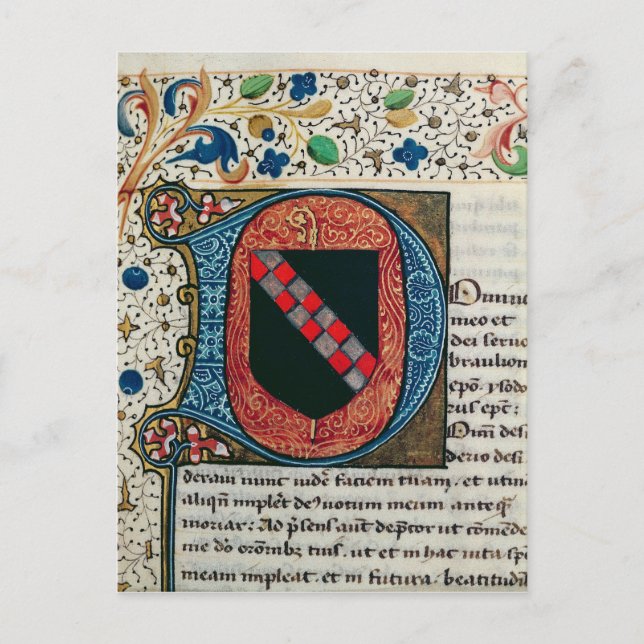 Domino
meo et
dei servo
braulioni
epō. ysido
rus epc̄:
Om̄i desi
derio desi
deravi nunc vidē faciem tuam, et utina
aliqn̄ implēt deꝰ votum meum ante qͣ
moriar: Ad p̄sens aut̄ dep̄cor ut cōmēde
me dō orōmbꝫ tuis, ut et in hac vita spē
meam impleat. et in futura. beatitudī